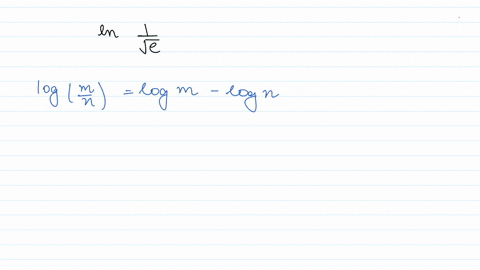 ln 1/√e
log(m/n) = log m - log n